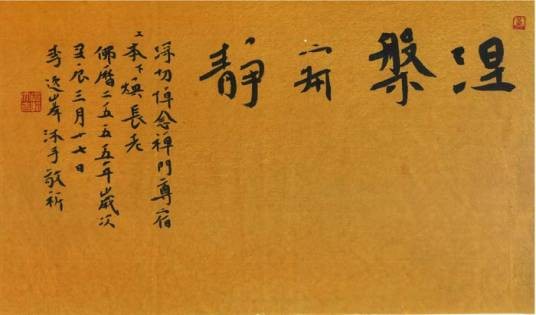 涅槃寂靜
深切悼念禪門尊宿
上本下煥長老
佛曆二五五五年歲次
壬辰三月十七日
李岸沐手敬祈